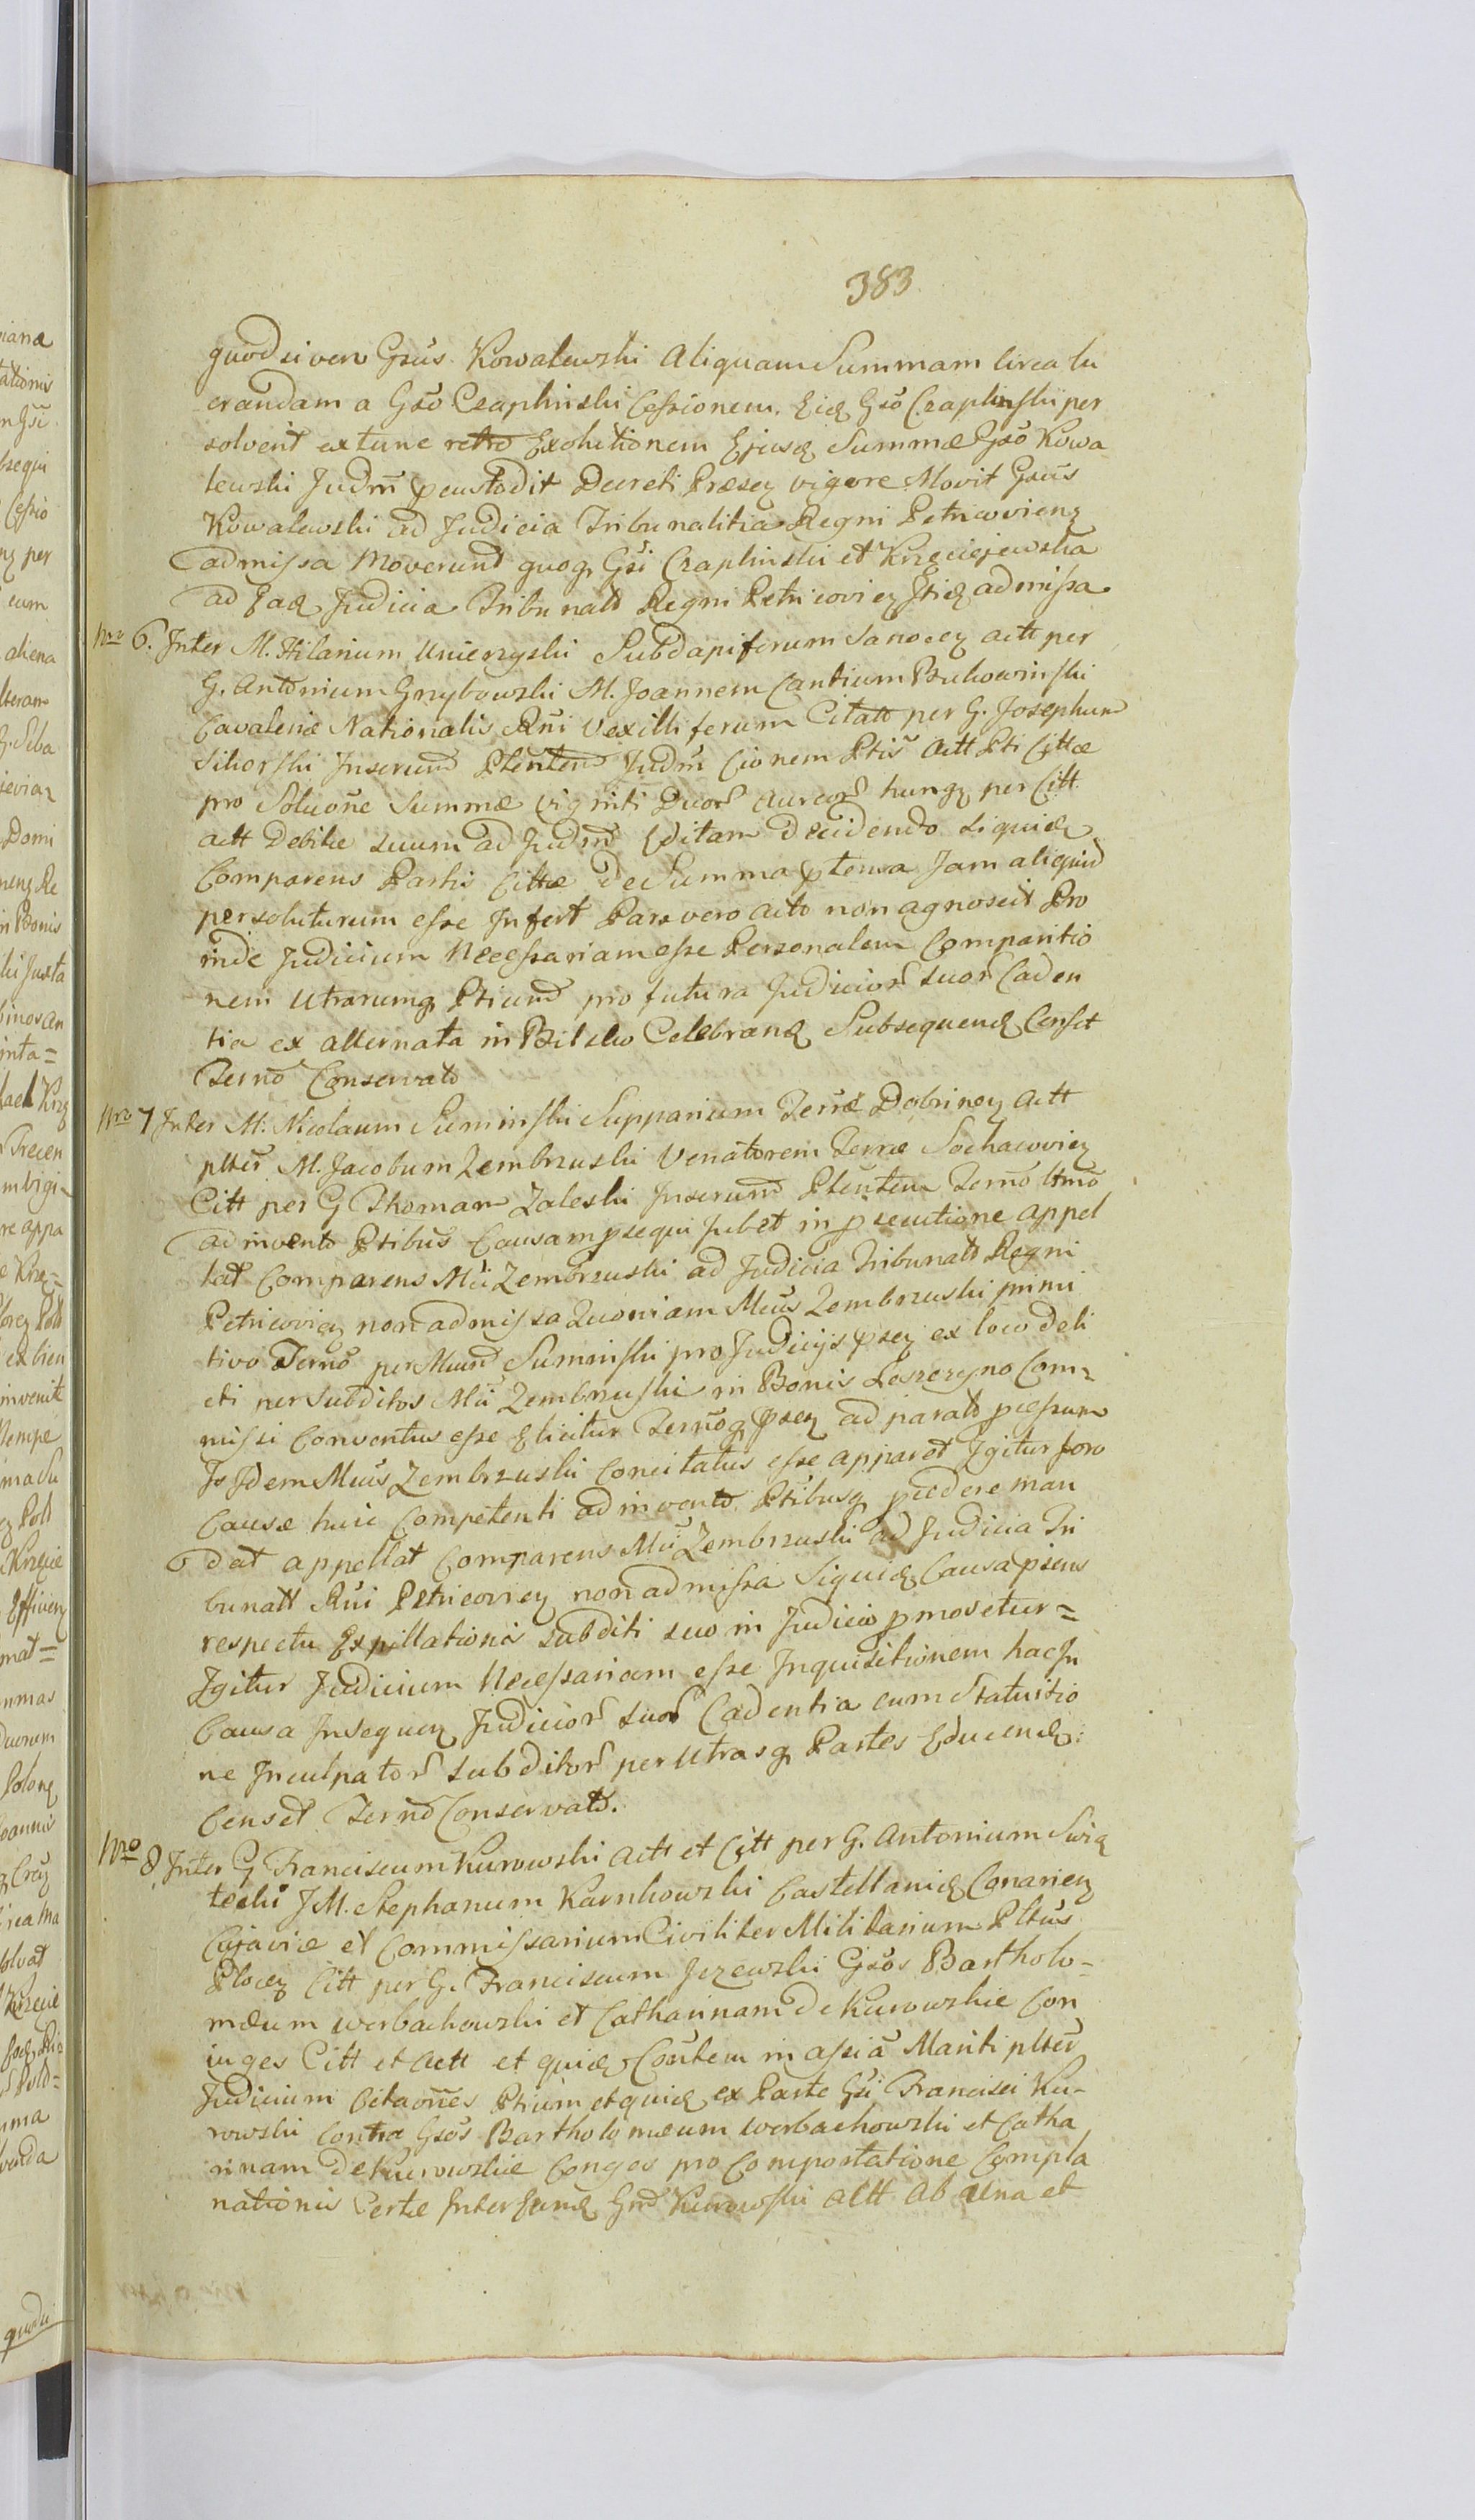 383
quodsi vero Gsus Kowalewski Aliquam Summam circa lu
crandam a Gso Czaplinski Cessionem, Eidę Gso Czaplinski per
solverit extunc retro Exolutionem Ejusdę Summæ Gso Kowa
lewski Judm pcustodit Decreti Præseţ vigore Movit Gsus
Kowalewski ad Judicia Tribunalitia Regni Petricovienţ
admissa Moverunt quoq Gsi Czaplinski et Krzęciejewska
ad Eadę Judicia Tribunalt Regni Petricovieţ Itidę admissa
Nro 6. Inter M. Hilarium Unierzyski Subdapiferum Sanoceţ actt per
G. Antonium Grzybowski M. Joannem Cantium Bukowinski
Cavaleriæ Nationalis Rni Vexilliferum Citatt per G. Josephum
Sikorski Inserund Pltentend Judm Cionem Ptis Actt Pti Cittæ
pro Soluone Summæ viginti Duor Aureor hungţ per Citt
actt Debitæ suum ad Judm Editam Decidendo Siquidę
Comparens Partis Cittæ de Summa ptensa Jam aliquid
persoluturum esse Infert Pars vero acto non agnoscit Pro
inde Judicium Necessariam esse Personalem Comparitio
nem Utrarumq Ptiumd pro futura Judicior suor Caden
tia ex alternata in Bielsko Celebrandę Subsequendę Censet
Termo Conservato
Nro 7 Inter M. Nicolaum Suminski Supparium Terræ Dobrineţ actt
plter M. Jacobum Zembrzuski Venatorem Terræ Sochacovieţ
Citt per G Thomam Zaleski Inserund Pltentem Termo Utmo
adinvento Ptibus Causam psequi jubet in psecutione appel
lat Comparens Mci Zembrzuski ad Judicia Tribunalt Regni
Petricovieţ non admissa Quoniam Mcus Zembrzuski primi
tivo Termo per Mcum Suminski pro Judicijs pseţ ex loco deli
cti per subditos Mci Zembrzuski in Bonis Leszczyno Com=
missi Conventus esse Elicitur Termoq pseţ ad parato pcessum
Is Idem Mcus Zembrzuski Concitatus esse apparet Igitur foro
Causæ huic Competenti adinvento Ptibusq pcedere man
dat appellat Comparens Mci Zembrzuski ad Judicia Tri
bunatt Rni Petricovieţ non admissa Siquidę Causa psens
respectu Expillationis subditi suo in Judicio pmovetur=
Igitur Judicium Necessariam esse Inquisitionem hac In
Causa Insequenţ Judicior suor Cadentia cum Statuitio
ne Inculpator subditor per Utrasq Partes Educendę:
Censet Termo Conservato.
Nro 8 Inter G Franciscum Kurowski actt et Citt per G. Antonium Swię
tecki J M. Stephanum Karnkowski Castellanidę Conarieţ
Cujaviæ et Commissarium Civiliter Militarium Pltus
Ploceţ Citt per G. Franciscum Jezewski Gsos Bartholo-
mæum Werbachowski et Catharinam de Kurowskie Con
iuges Citt et actt et quidę Contem in assia Mariti plter
Judicium Citaones Ptium et quidę ex Parte Gsi Francisci Ku-
rowski Contra Gsos Bartholomæum Werbachowski et Catha
rinam de Kurowskie Conges pro Comportatione Compla
nationis Certæ Inter Eumdę Gnd Kurowski actt Ab Una et